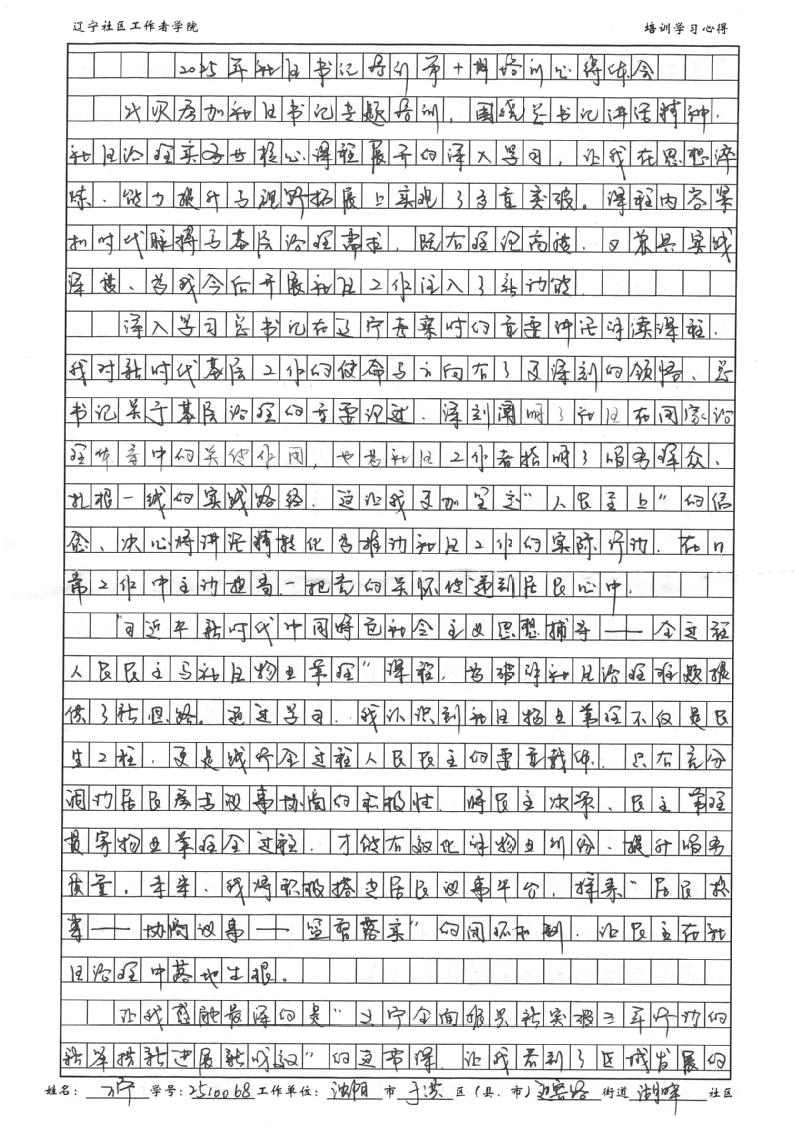 辽宁社区工作者学院 培训学习心得
2025年社区书记培训第十期培训心得体会
此次参加社区书记专题培训，围绕总书记讲话精神、
社区治理实务等核心课程展开的深入学习，让我在思想淬
炼、能力提升与视野拓展上实现了多重突破。课程内容紧
扣时代脉搏与基层治理需求，既有理论高度，又兼具实践
深度、为我今后开展社区工作注入了新动能
深入学习总书记在辽宁考察时的重要讲话解读课程，
我对新时代基层工作的使命与方向有了更深刻的领悟、总
书记关于基层治理的重要论述，深刻阐明了社区在国家治
理体系中的关键作用，也为社区工作者指明了服务群众、
扎根一线的实践路径。这让我更加坚定"人民至上"的信
念、决心将讲话精神转化为推动社区工作的实际行动，在日
常工作中主动把党的关怀传递到居民心中.
"习近平新时代中国特色社会主义思想辅导——全过程
人民民主与社区物业管理"课程，为破解社区治理难题提
供了新思路。通过学习，我认识到社区物业管理不仅是民
生工程，更是践行全过程人民民主的重要载体. 只有充分
调动居民参与议事协商的积极性，将民主决策、民主管理
贯穿物业管理全过程，才能有效化解物业纠纷、提升服务
质量。未来，我将积极搭建居民议事平台，探索"居民提
案——协商议事——监督落实"的闭环机制，让民主在社
区治理中落地生根。
让我感触最深的是"辽宁全面振兴新突破三年行动的
新举措新进展新成效"的这节课，让我看到了区域发展的
姓名： 宁 学号：2510068 工作单位：沈阳 市 于洪 区（县、市） 迎宾路 街道 湖畔 社区